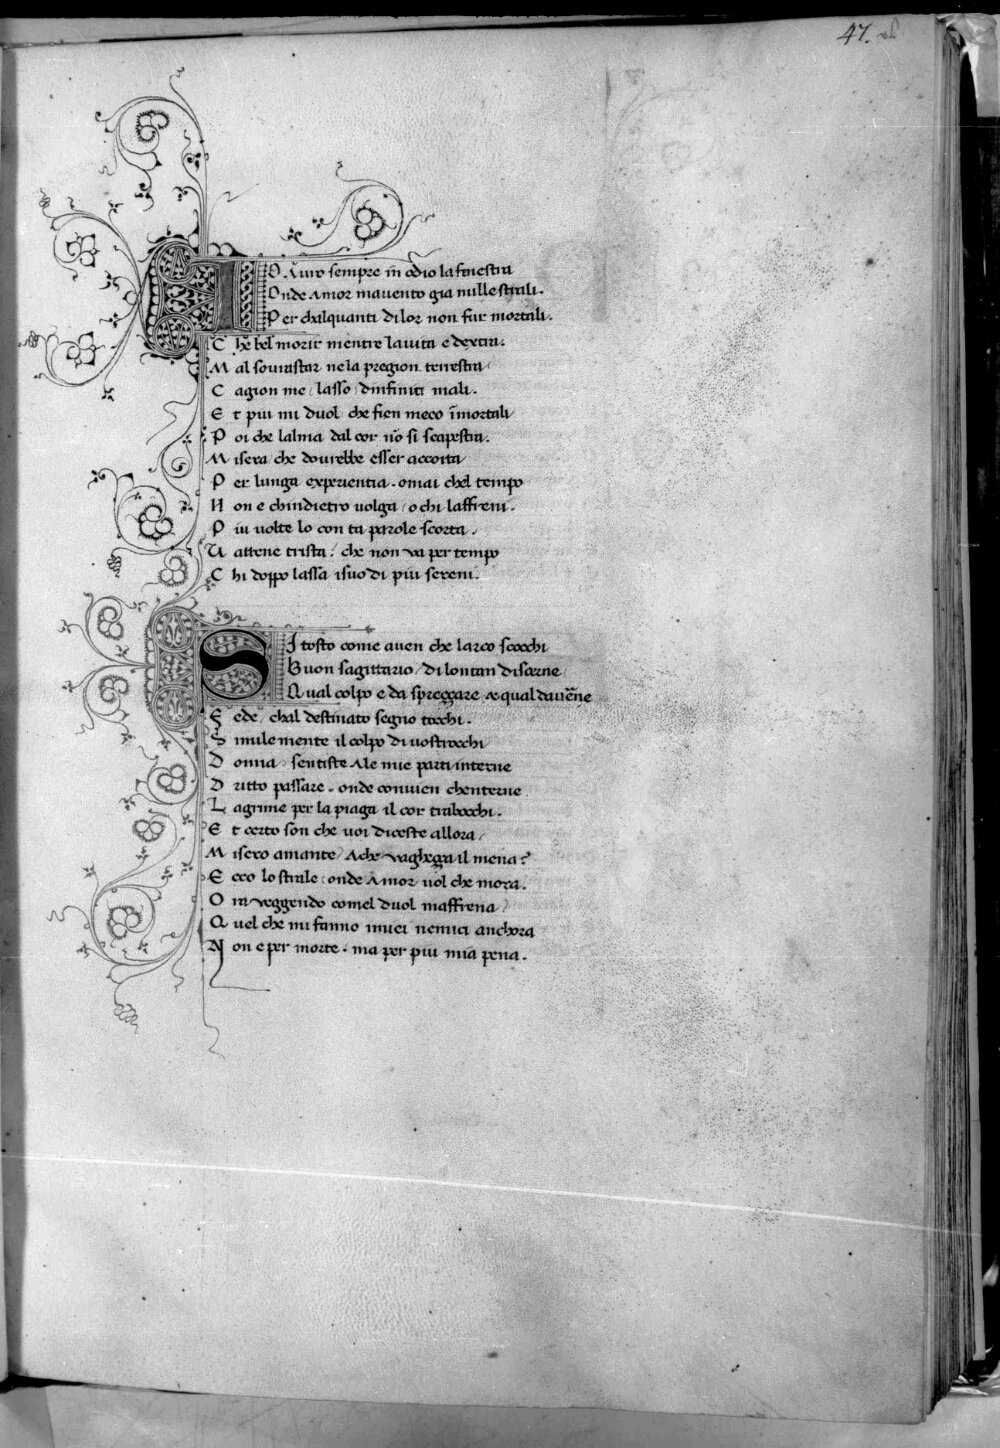 47.
IO Avro sempre in odio la fenestra
Onde Amor mavento gia mille strali.
Per chalquanti di lor non fur mortali.
Che bel morir mentre la vita e dextra.
Mal sovrastar ne la pregion terrestra
Cagion me / lasso / dinfiniti mali.
Et piu mi duol che fien meco īmortali
Poi che lalma dal cor nō si scapestra.
Misera che dovrebbe esser accorta
Per lunga experientia. omai chel tempo
Non e chindietro volga / o chi laffreni.
Piu volte lo con ta parole scorta.
Vattene trista / che non va per tempo
Chi doppo lassa i suo di piu sereni.
SI tosto come aven che larco scocchi
Buon sagittario / di lontan discerne /
Qual colpo e da spreggare & qual davēne
Fede / chal destinato segno tocchi.
Simile mente il colpo di vostrocchi
Donna / sentiste Ale mie parti interne
Dritto passare. onde convien chenterne
Lagrime per la piaga il cor trabocchi.
Et certo son che voi diceste allora /
Misero amante / Ache vaghegga il mena?
Ecco lo strale / onde Amor vol che mora.
Ora veggendo comel duol maffrena /
Quel che mi fanno imiei nemici anchora
Non e per morte. ma per piu mia pena.